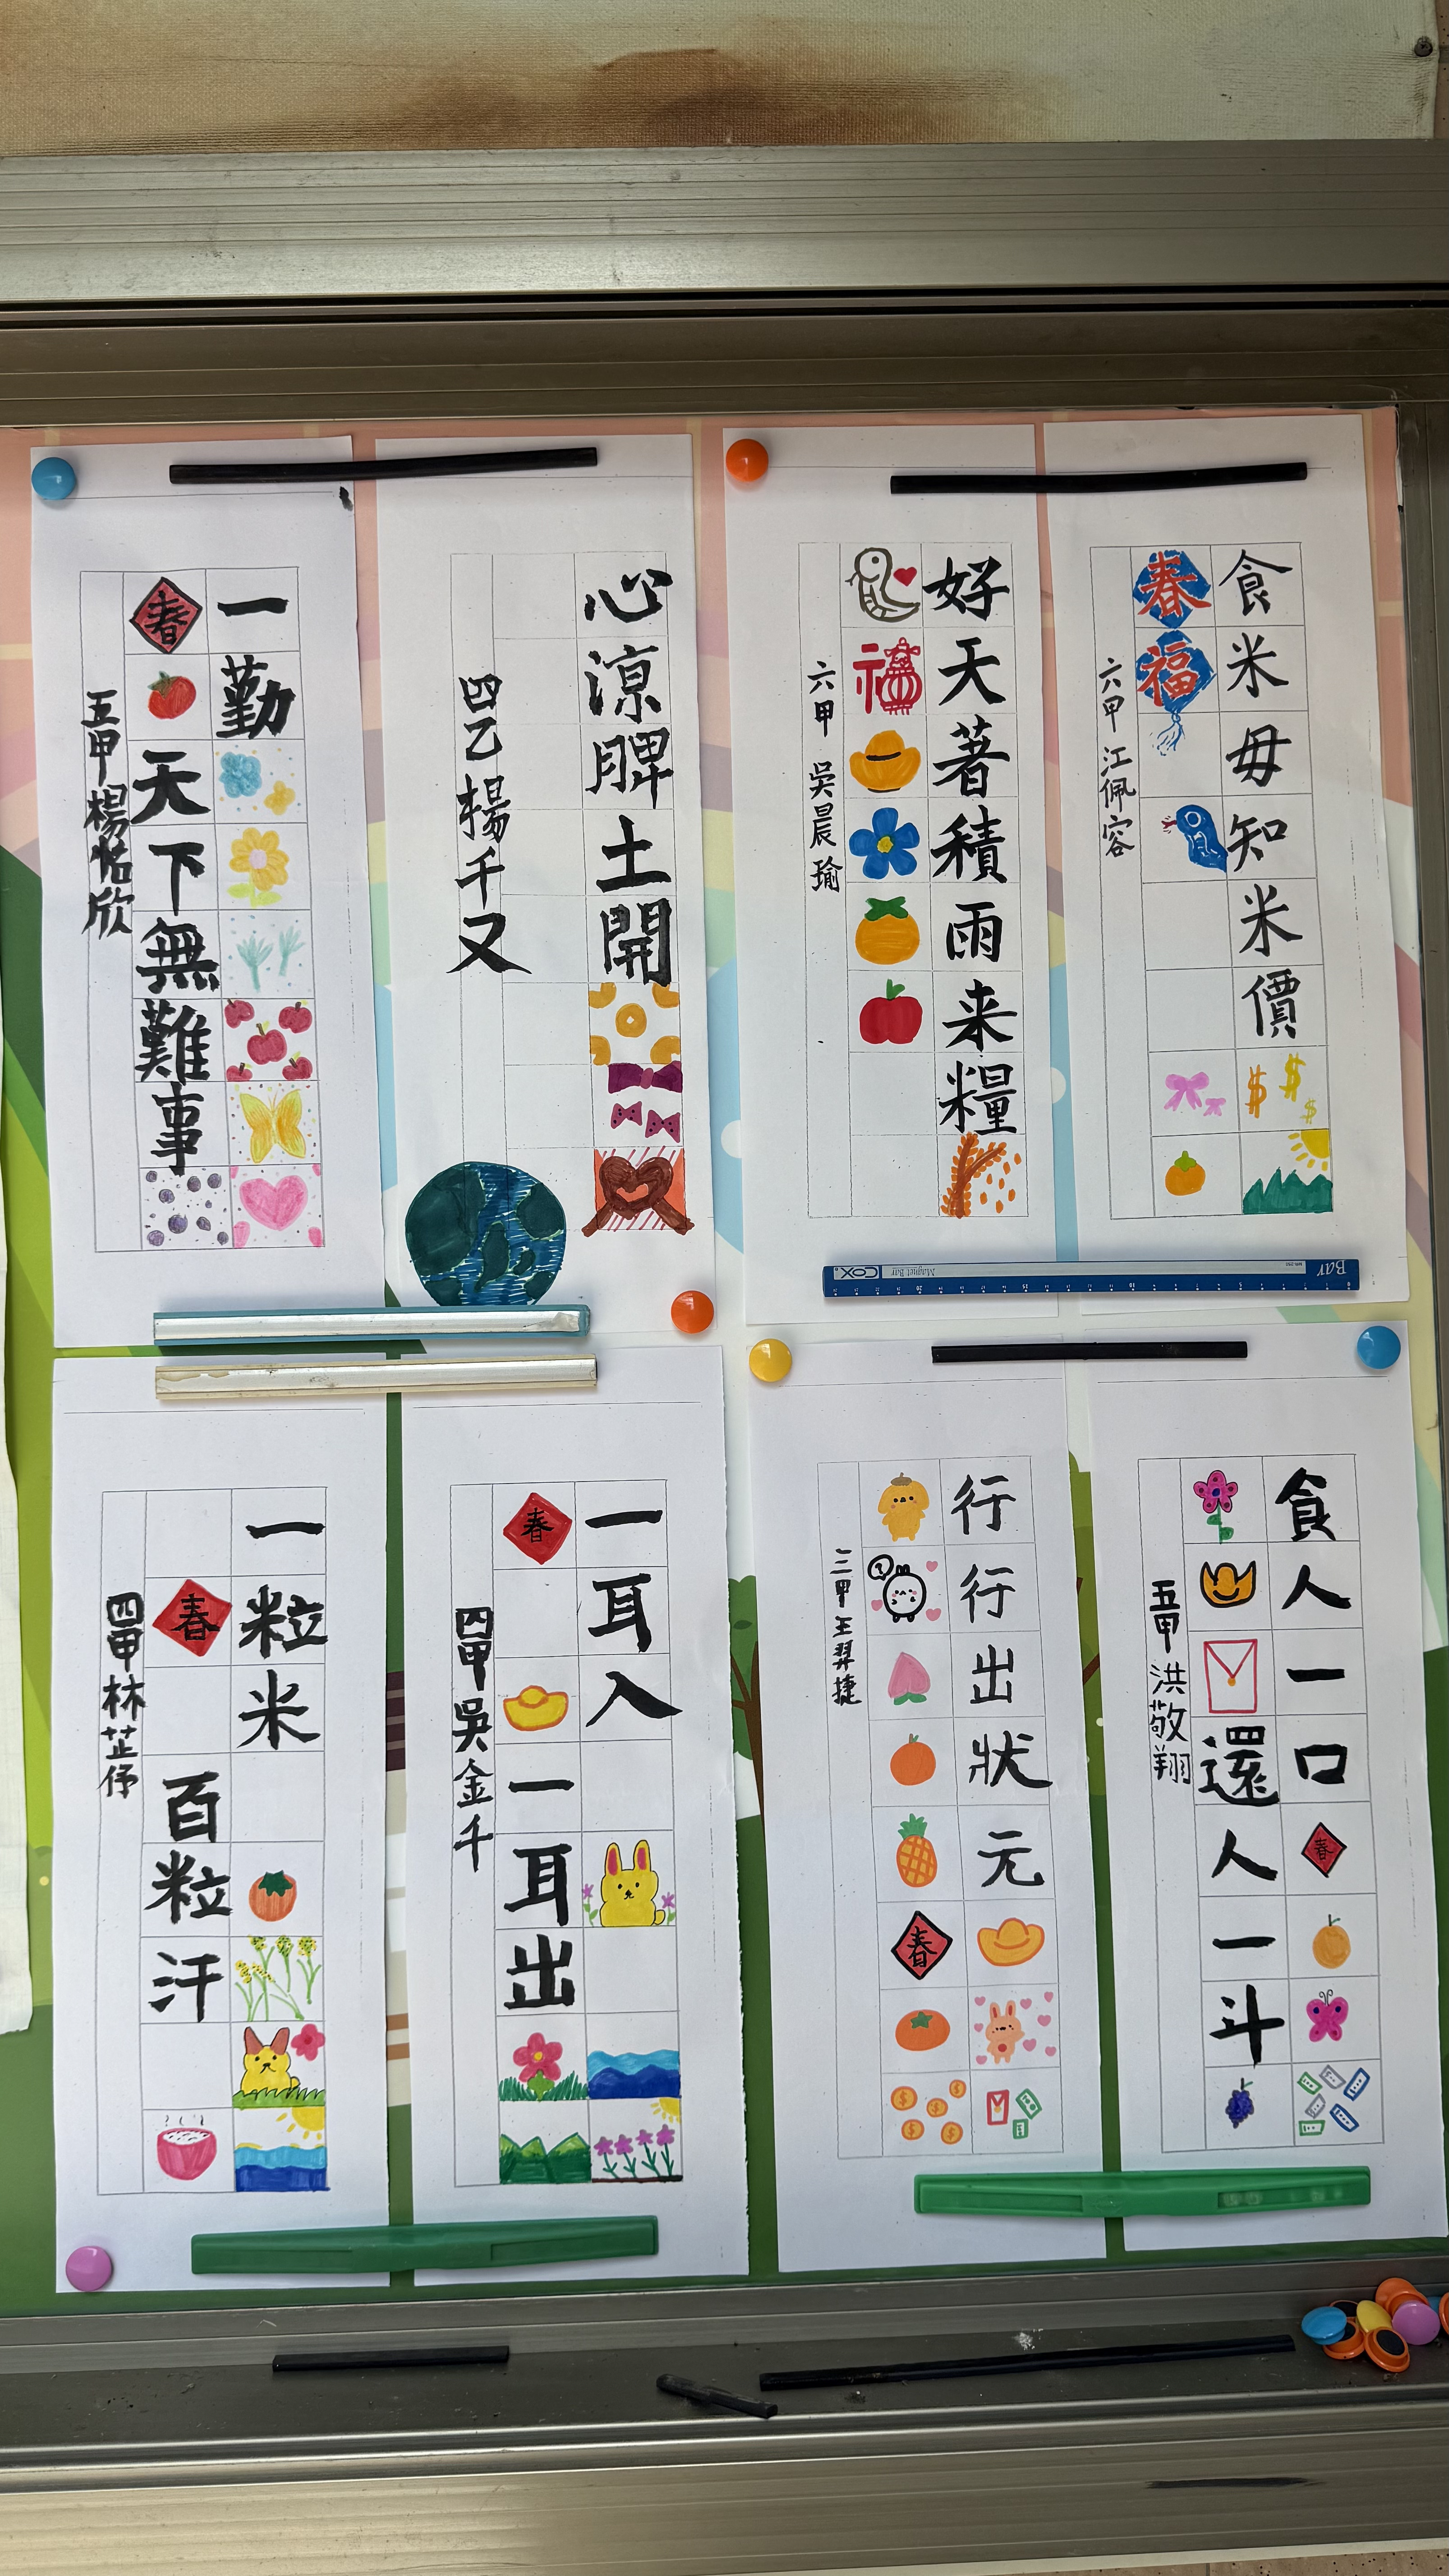 食米毋知米價
春福
六甲 江佩容
好天著積雨来糧
福
六甲 吳晨瑜
心涼脾土開
四乙楊千又
一勤
春
天下無難事
五甲楊恬欣
Bar
Magnet Bar
COX
食人一口
春
還人一斗
五甲 洪敬翔
行行出狀元
春
三甲王羿捷
一耳入
春
一耳出
四甲吳金千
一粒米
春
百粒汗
四甲林芷伃